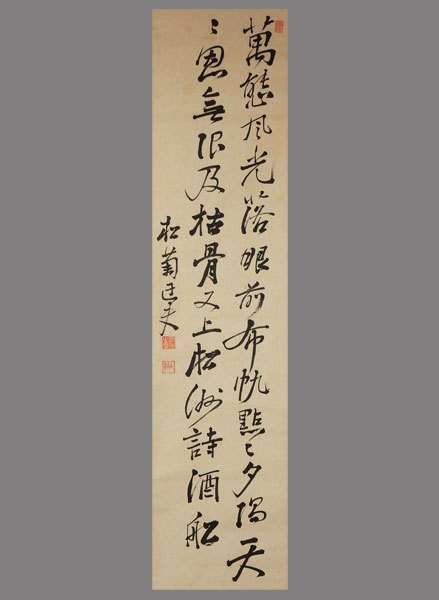 萬態風光落眼前布帆點〻夕陽天
〻恩無限及枯骨又上松洲詩酒船
松菊夫